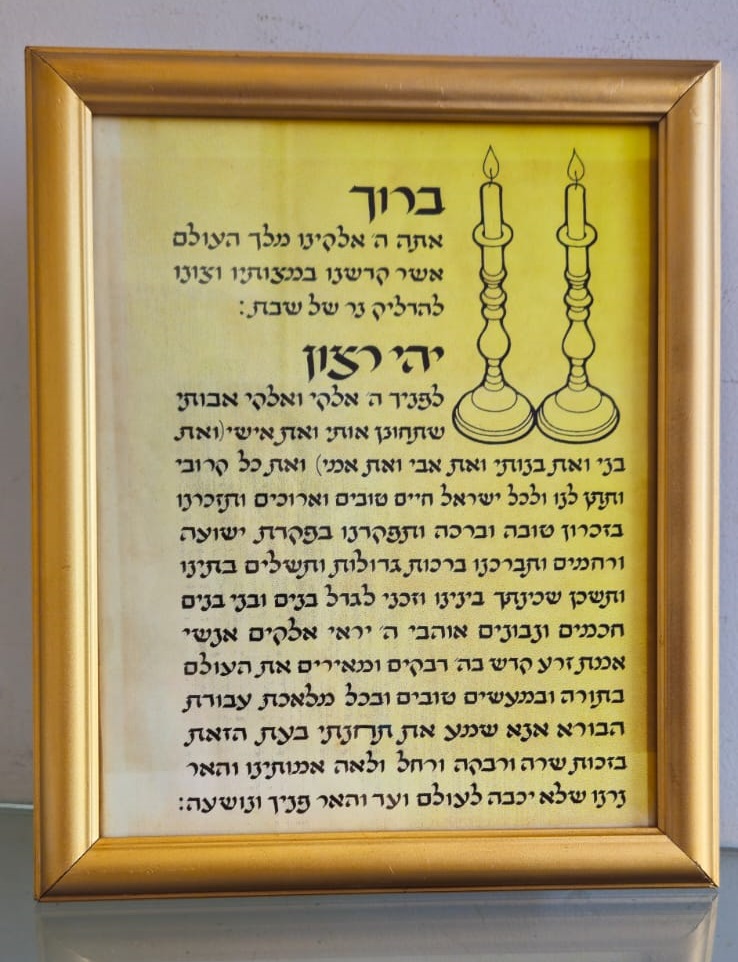 ברוך
אתה ה' אלקינו מלך העולם
אשר קדשנו במצותיו וצונו
להדליק נר של שבת:
יהי רצון
לפניך ה' אלקי ואלקי אבותי
שתחונן אותי ואת אישי (ואת
בני ואת בנותי ואת אבי ואת אמי) ואת כל קרובי
ותתן לנו ולכל ישראל חיים טובים וארוכים ותזכרנו
בזכרון טובה וברכה ותפקדנו בפקדת ישועה
ורחמים ותברכנו ברכות גדולות ותשלים בתינו
ותשכן שכינתך בינינו וזכני לגדל בנים ובני בנים
חכמים ונבונים אוהבי ה' יראי אלקים אנשי
אמת זרע קדש בה' דבקים ומאירים את העולם
בתורה ובמעשים טובים ובכל מלאכת עבודת
הבורא אנא שמע את תחנתי בעת הזאת
בזכות שרה ורבקה ורחל ולאה אמותינו והאר
נרנו שלא יכבה לעולם ועד והאר פניך ונושעה: